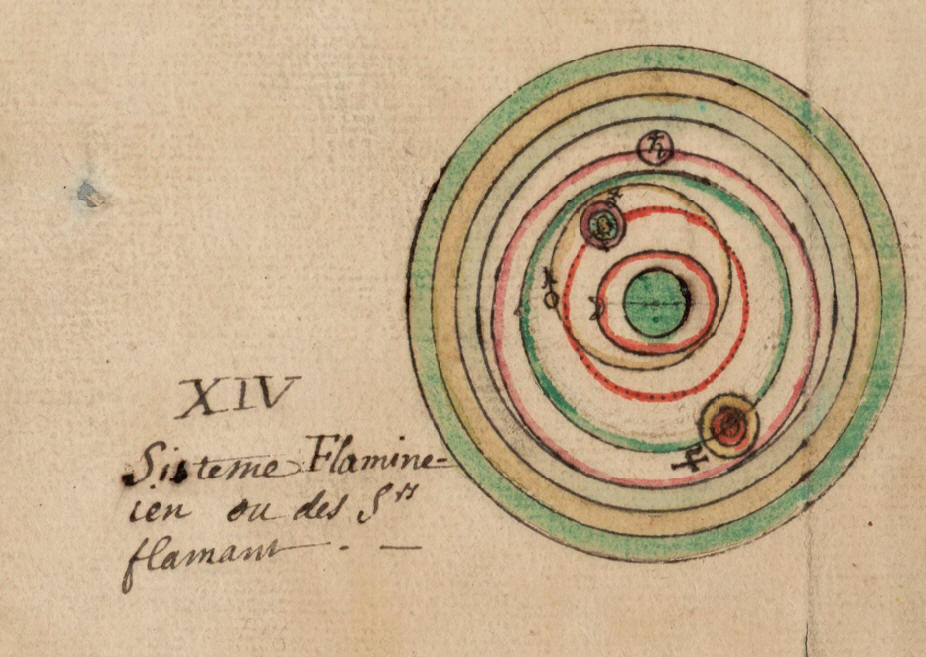 XIV
Sisteme Flamine-
ien ou des Srs
flamant . —
♄
♃
☽